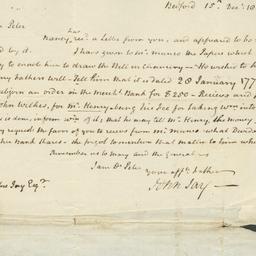 Bedford 15th Decr. 18
Dr Peter
Nancy has recd. a Letter from you, and appeared to be
by it.
I have given to Mr. Munro the Papers which
to enable him to draw the Bill in chancery — He wishes to
my Fathers will — Tell him that it is dated 28 January 177
subjoin an order on the mercht. Bank for $250 — Recieve and
John Wilkes, for Mr. Henry — being his Fee for taking
is done, inform Wm. of it, that he may tell Mr. Henry, the money
request the favor of you to recieve from Mr. Munro what Divid
Bank Shares — She forgot to mention that matter to him when
Remember us to Mary and the General
I am Dr. Peter
your affte. Father
John Jay
Jay Esqr.